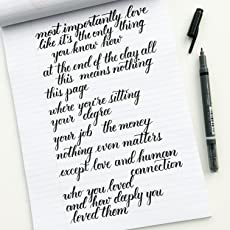 most importantly love
like it's the only thing
you know how
at the end of the day all
this means nothing
this page
where you're sitting
your degree
your job the money
nothing even matters
except love and human
connection
who you loved
and how deeply you
loved them